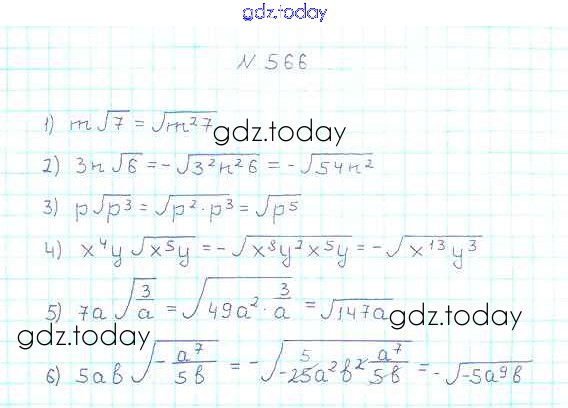 gdz.today
N 566
1) m√7 = √m²7
gdz.today
2) 3n√6 = -√3²n²6 = -√54n²
3) p√p³ = √p²·p³ = √p⁵
4) x⁴y √x⁵y = -√x⁸y²x⁵y = -√x¹³y³
5) 7a √3/a = √49a²·3/a = √147a
gdz.today
gdz.today
6) 5ab √-a⁷/5b = -√-25a²b² a⁷/5b = -√-5a⁹b
5